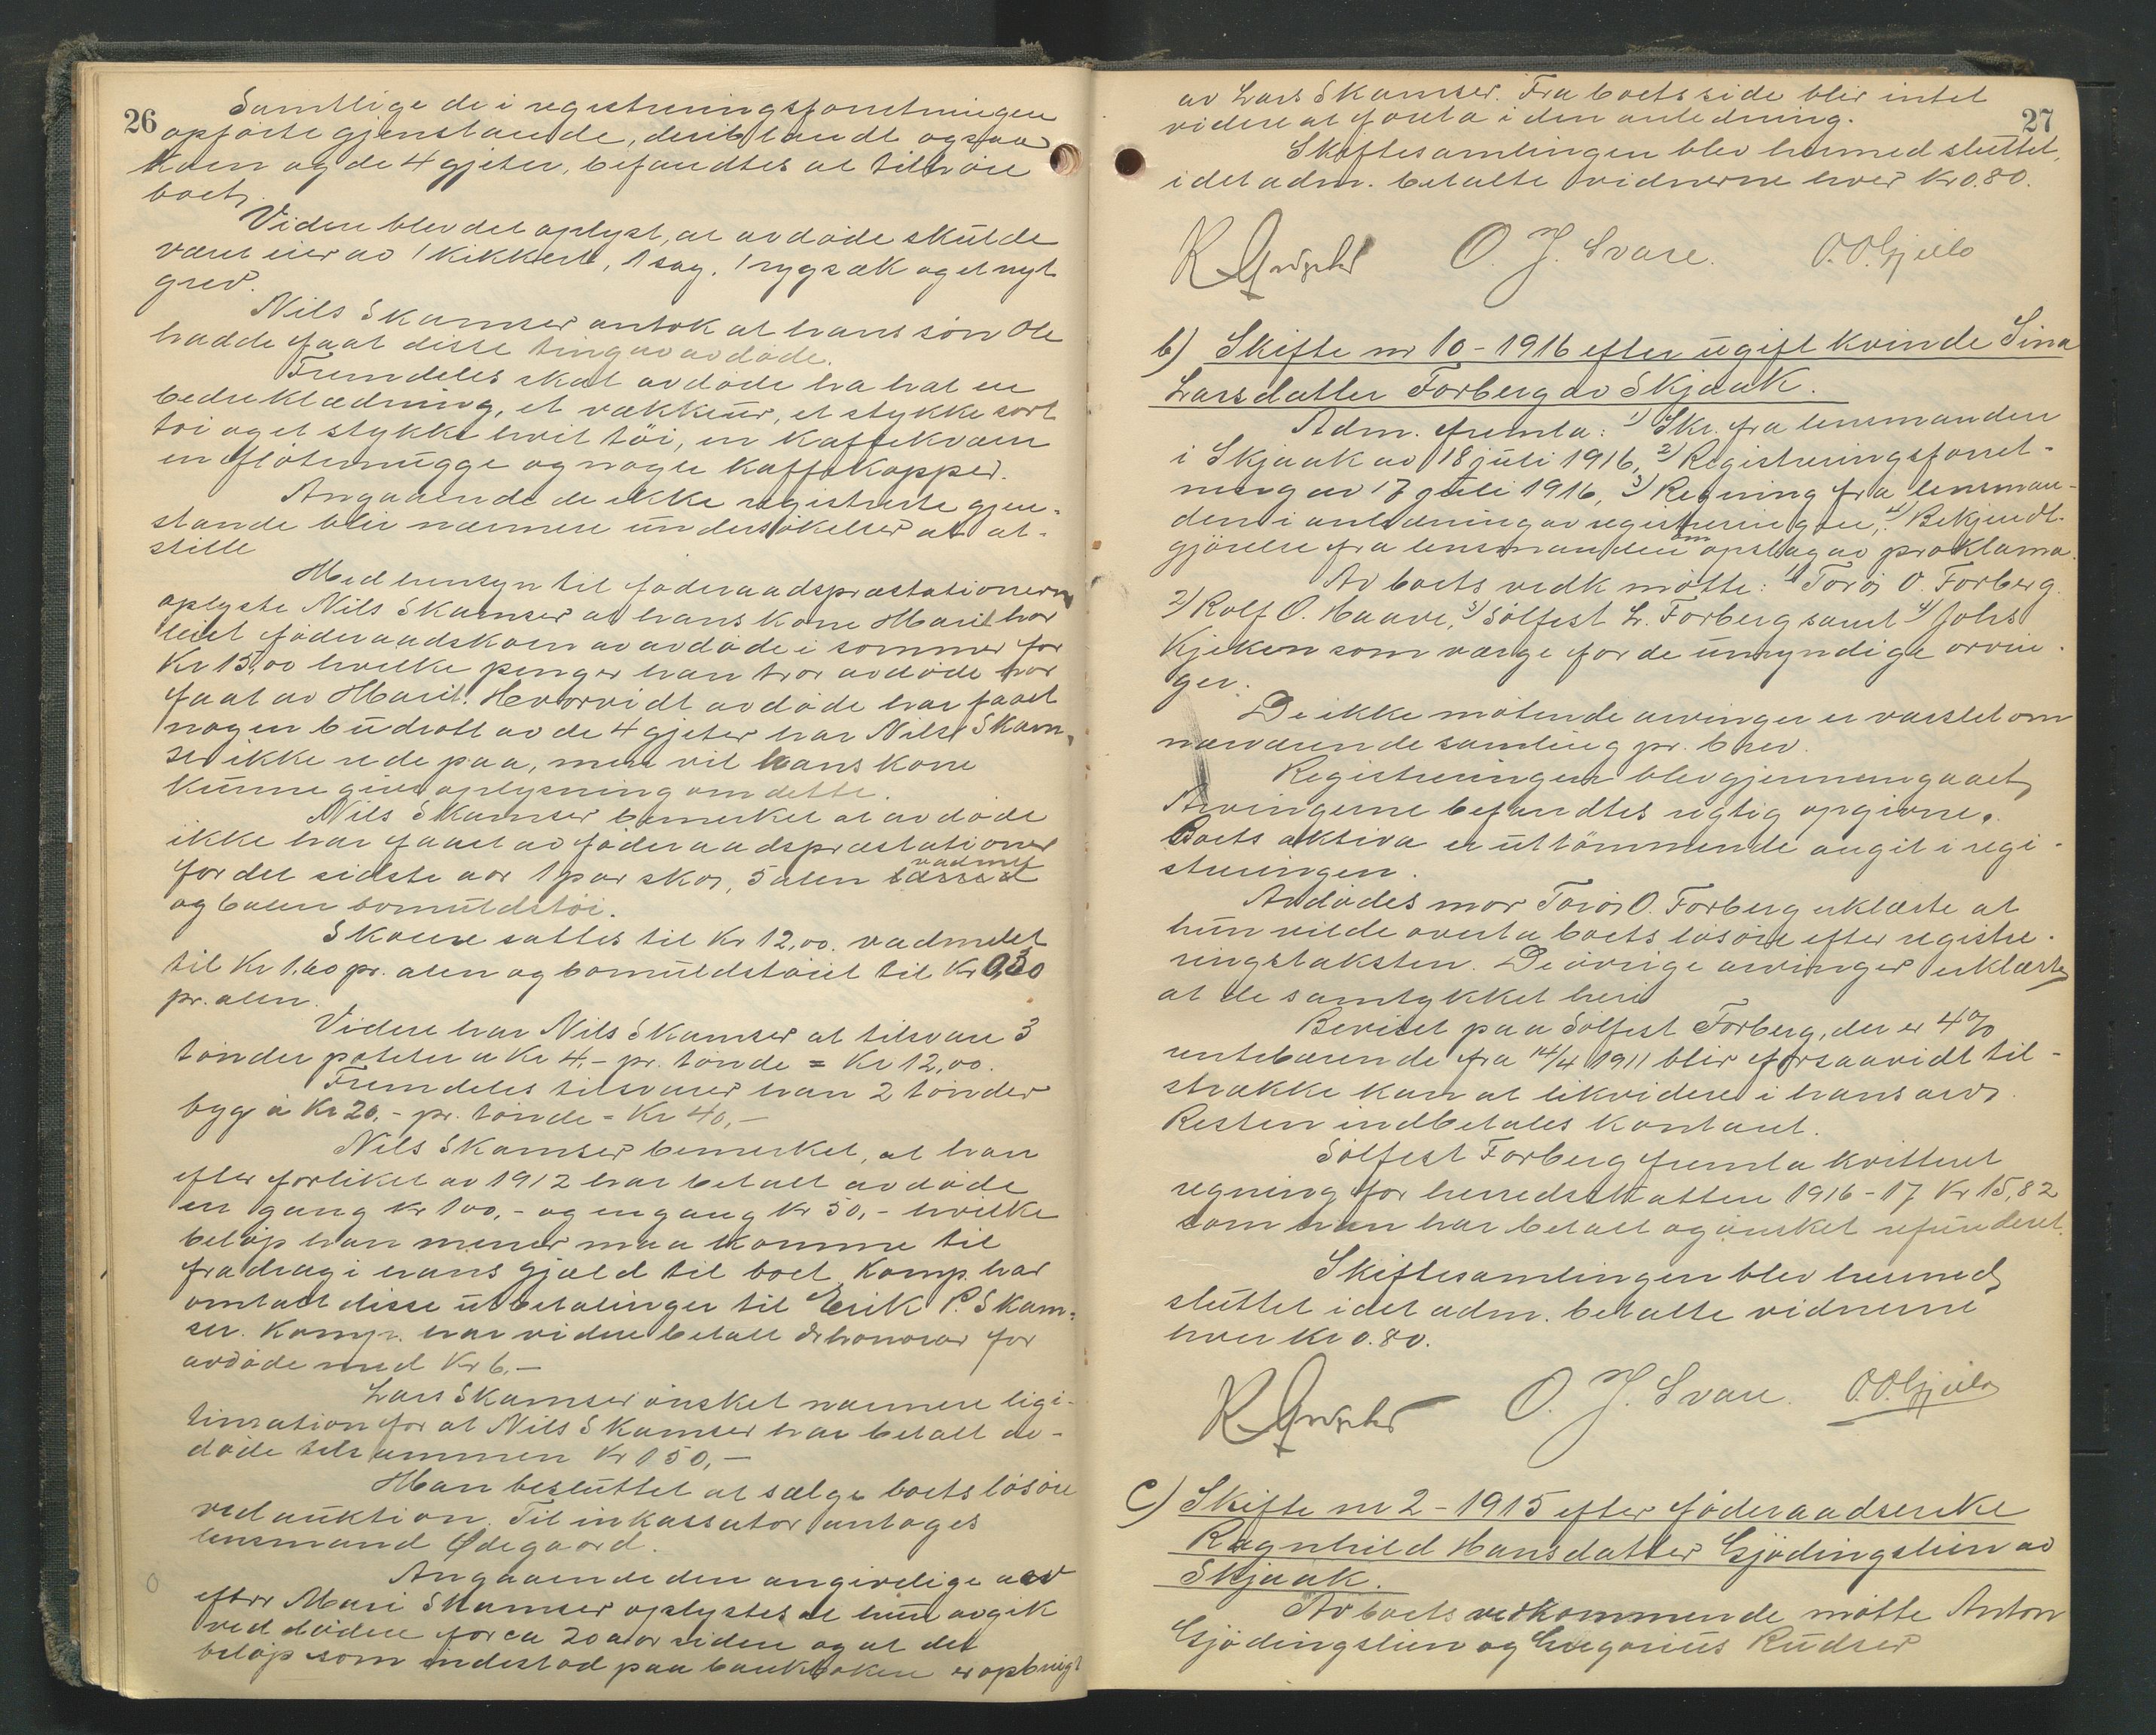 26
Samtlige de i registreringsforretningen
opförte gjenstande, deriblandt ogsaa
koen og de 4 gjeter, befandtes at tilhöre
boet.
Videre blev det oplyst, at avdöde skulde
været eier av 1 kikkert, 1 sag, 1 rygsæk og et nyt
grev.
Nils Skamser antok at hans sön Ole
hadde faat disse ting av avdöde.
Fremdeles skal avdöde ha hat en
bedre klædning, et vækkeur, et stykke sort
töi og et stykke hvit töi, en kaffekvern
en flötemugge og nogle kaffekopper.
Angaaende de ikke registrerte gjen-
stande blir nærmere undersökelser at at-
stille
Med hensyn til föderaadspræstationerne
oplyste Nils Skamser at hans kone Marit har
leiet föderaadskoen av avdöde i sommer for
Kr 15,00 hvilke penger han tror avdöde har
faat av Marit. Hvorvidt avdöde har faaet
nogen budrott av de 4 gjeter har Nils Skam-
ser ikke rede paa, men vil hans kone
kunne give oplysning om dette.
Nils Skamser bemerket at avdöde
ikke har faaet av föderaadspræstationer
for det sidste aar 1 par sko, 5 alen vadmel
og 6 alen bomuldstöi.
Skoene sattes til Kr 12,00. vadmelet
til Kr 1,60 pr. alen og bomuldstöiet til Kr 0,30
pr. alen.
Videre har Nils Skamser at tilsvare 3
tönder poteter a Kr 4,- pr. tönde = Kr 12,00.
Fremdeles tilsvarer han 2 tönder
byg à Kr 20,- pr. tönde = Kr 40,-
Nils Skamser bemerket, at han
efter forliket av 1912 har betalt avdöde
en gang kr 100,- og en gang kr 50,- hvilke
belöp han mener maa komme til
fradrag i hans gjæld til boet. Komp. har
omtalt disse utbetalinger til Erik P. Skam-
ser. Komp. har videre betalt dr honorar for
avdöde med Kr 6,-
Lars Skamser önsket nærmere ligi-
timation for at Nils Skamser har betalt av-
döde tilsammen Kr 150,-
Man besluttet at sælge boets lösöre
ved auktion. Til inkassator antoges
lensmand Ødegaard.
Angaaende den angivelige arv
efter Mari Skamser oplystes at hun avgik
ved döden for ca 20 aar siden og at det
belöp som indestod paa bankboken er opbrugt
27
av Lars Skamser. Fra boets side blir intet
videre at foreta i den anledning.
Skiftesamlingen blev hermed sluttet,
idet adm. betalte vidnerne hver kr 0.80.
O. J. Svare. O. O. Gjeilo
b) Skifte nr 10 - 1916 efter ugift kvinde Sina
Larsdatter Forberg av Skjaak.
Adm. fremla: 1) Skr. fra lensmanden
i Skjaak av 18 juli 1916, 2) Registreringsforret-
ning av 17 juli 1916, 3) Regning fra lensman-
den i anledning av registreringen, 4) Bekjendt-
gjörelse fra lensmanden om opslag av proklama.
Av boets vedk. mötte: 1) Toröi O. Forberg.
2) Rolf O. Haave, 3) Sölfest L. Forberg samt 4) Johs
Kjeken som værge for de umyndige arvin-
ger.
De ikke mötende arvinger er varslet om
nærværende samling pr. brev.
Registreringen blev gjennemgaaet
Arvingerne befandtes rigtig opgivne.
Boets aktiva er uttömmende angit i regi-
streringen.
Avdödes mor Toröi O. Forberg erklærte at
hun vilde overta boets lösöre efter registre-
ringstaksten. De övrige arvinger erklærte
at de samtykket heri
Beviset paa Sölfest Forberg, der er 4 %
rentebærende fra 14/4 1911 blir forsaavidt til-
strække kan at likvidere i hans arv.
Resten indbetales kontant.
Sölfest Forberg fremla kvitteret
regning for herredskatten 1916-17 Kr 15,82
som han har betalt og önsket refunderet.
Skiftesamlingen blev hermed
sluttet idet adm. betalte vidnerne
hver kr 0.80.
O. J. Svare. O. O. Gjeilo
C) Skifte nr 2 - 1915 efter föderaadsenke
Ragnhild Hansdatter Gjödingslien av
Skjaak.
Av boets vedkommende mötte Anton
Gjödingslien og Gregorius Rudser